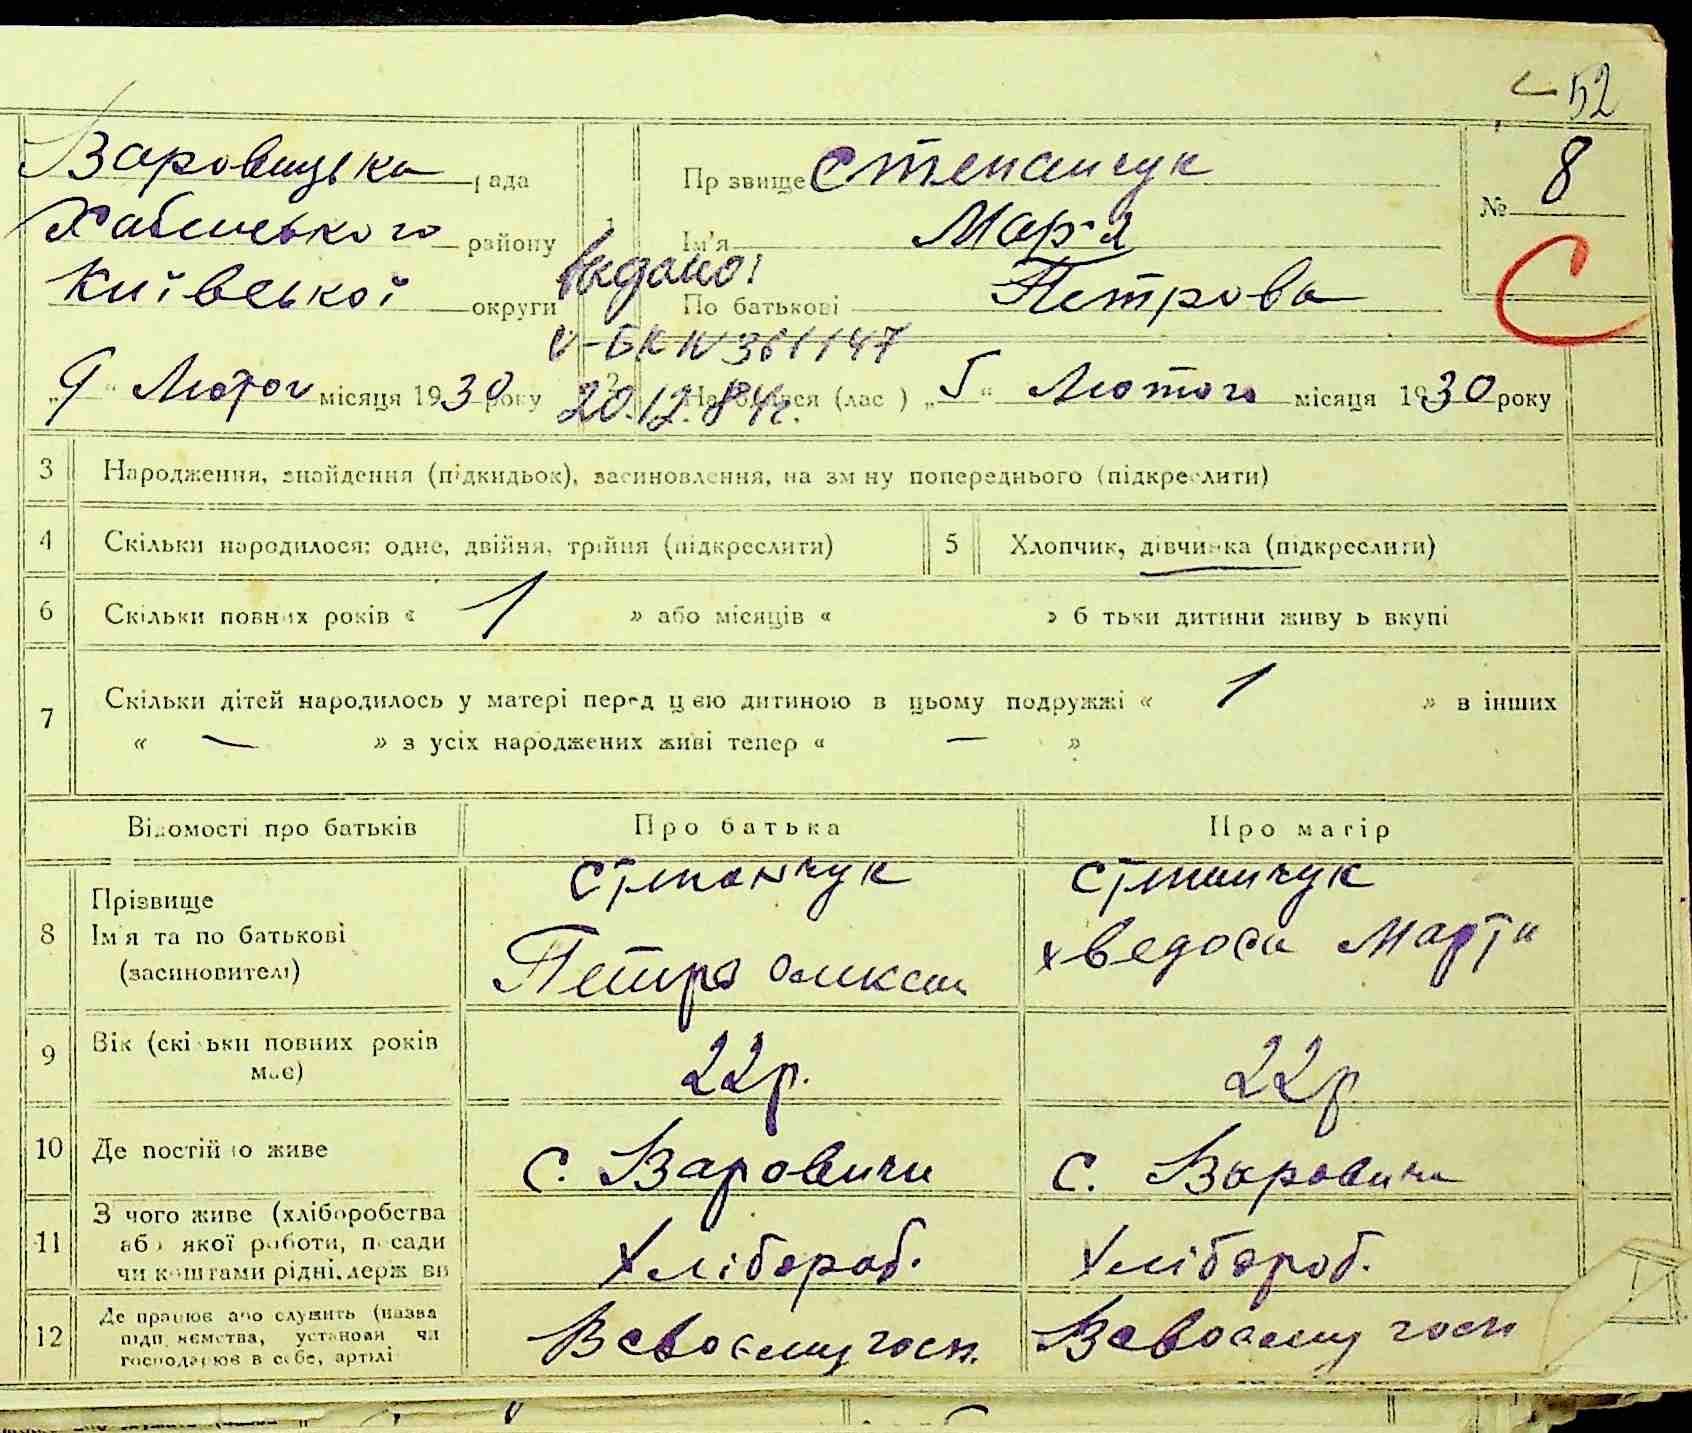 52
Варовицька рада
Хабенського району
Київської округи
„9“ Лютого місяця 1930 року
Прізвище Степанчук
Ім'я Мар'я
По батькові Петрова
№ 8
С
Видано:
V-БК № 361147
20.12.84г.
2 На одився (лас ) „5“ Лютого місяця 1930 року
3 Народження, знайдення (підкидьок), засиновлення, на зм ну попереднього (підкреслити)
4 Скільки народилося: одне, двійня, трійня (підкреслити)
5 Хлопчик, дівчинка (підкреслити)
6 Скільки повних років « 1 » або місяців « » б тьки дитини живу ь вкупі
7 Скільки дітей народилось у матері перед цією дитиною в цьому подружжі « 1 » в інших
« — » з усіх народжених живі тепер « — »
Відомості про батьків Про батька Про матір
8 Прізвище
Ім'я та по батькові
(засиновителі)
Степанчук
Петро Олексан
Степанчук
Хведоса Март
9 Вік (скільки повних років
має)
22р. 22р
10 Де постійно живе с. Варовичи с. Варовичи
11 З чого живе (хліборобства
або якої работи, посади
чи коштами рідні, держ ви
Хлібороб. Хлібороб.
12 Де працює або служить (назва
підп иємства, установи чи
господарює в себе, артілі
В своєму госп. В своєму госп